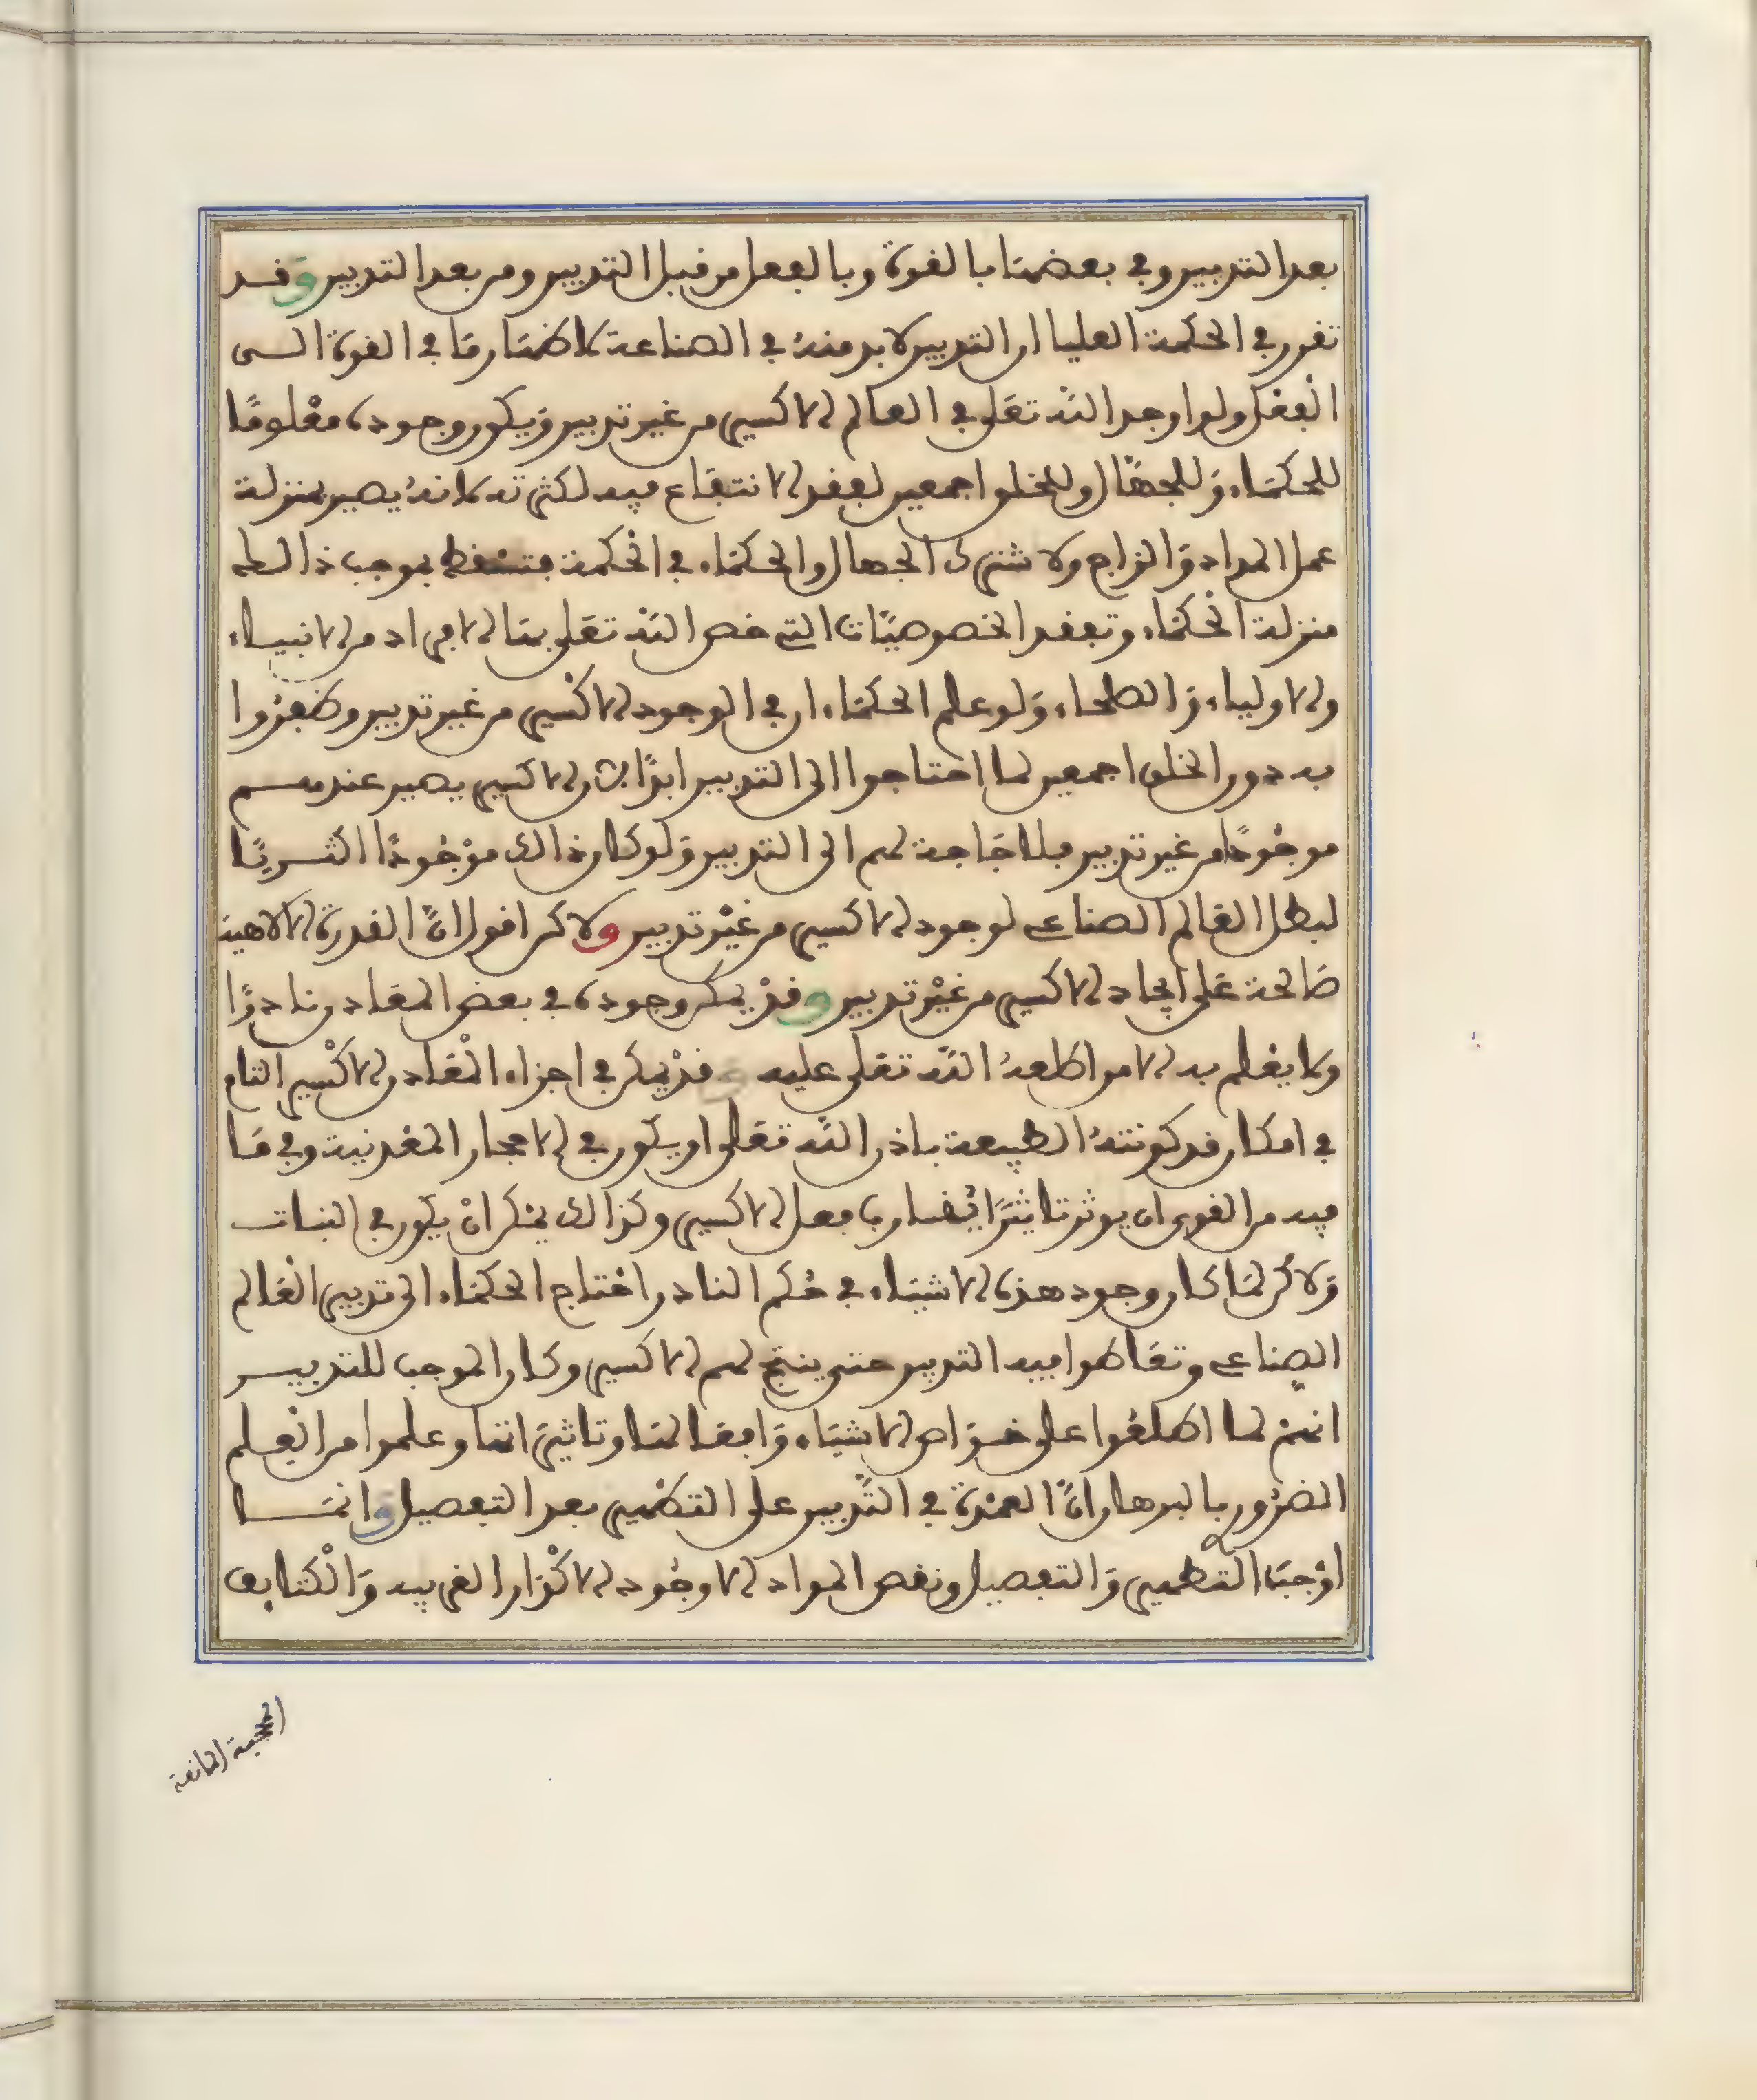 بعد التدبير وفي بعضها بالقوة وبالفعل من قبل التدبير ومن بعد التدبير وقد
تقرر في الحكمة العليا ان التدبير لابد منه في الصناعة لاظهار ما في القوة الى
الفعل ولو اوجد الله تعلى في العالم الاكسير من غير تدبير ويكون وجوده معلومًا
للحكماء وللجهال وللخلق اجمعين لفقد الانتفاع فيه لكثرته لانه يصير بمنزلة
عمل المداد والزاج ولاشترك الجهال والحكماء في الحكمة فتسقط بموجب ذالك
منزلة الحكماء وتفقد الخصوصيات التي خص الله تعلى بها الافراد من الانبياء
والاولياء والصلحاء ولو علم الحكماء ان في الوجود الاكسير من غير تدبير وظفروا
به دون الخلق اجمعين لما احتاجوا الى التدبير ابدًا لان الاكسير يصير عندهم
موجودًا من غير تدبير فلا حاجة لهم الى التدبير ولو كان ذالك موجودًا اكثريًا
لبطل العالم الصناعي لوجود الاكسير من غير تدبير ولاكن اقول انّ القدرة الالاهية
صالحة على ايجاد الاكسير من غير تدبير وقد يمكن وجوده في بعض المعادن نادرًا
ولا يعلم به الا من اطلعه الله تعلى عليه وقد يمكن في اجزاء المعادن الاكسير التام
في امكان قد كونته الطبيعة باذن الله تعلى او يكون في الاحجار المعدنية وفي ما
فيه من القوى ان يوثر تاثيرًا يضارب فعل الاكسير وكذالك يمكن ان يكون في النبات
ولاكن لما كان وجود هذه الاشياء في حكم النادر احتاج الحكماء الى تدبير العالم
الصناعي وتعاطوا فيه التدبير حتى ينتج لهم الاكسير وكان الموجب للتدبير
انهم لما اطلعوا على خواص الاشياء وافعالها وتاثيراتها وعلموا من العلم
الضرور بالبرهان انّ العمدة في التدبير على التطهير بعد التفصيل وانما
اوجب التطهير والتفصيل ونقص المواد الا وجود الاكدار الغريبه والكثايف
الحجبة المانعة